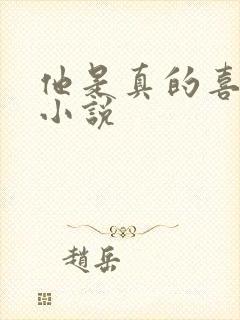 他是真的喜
小説
趙岳